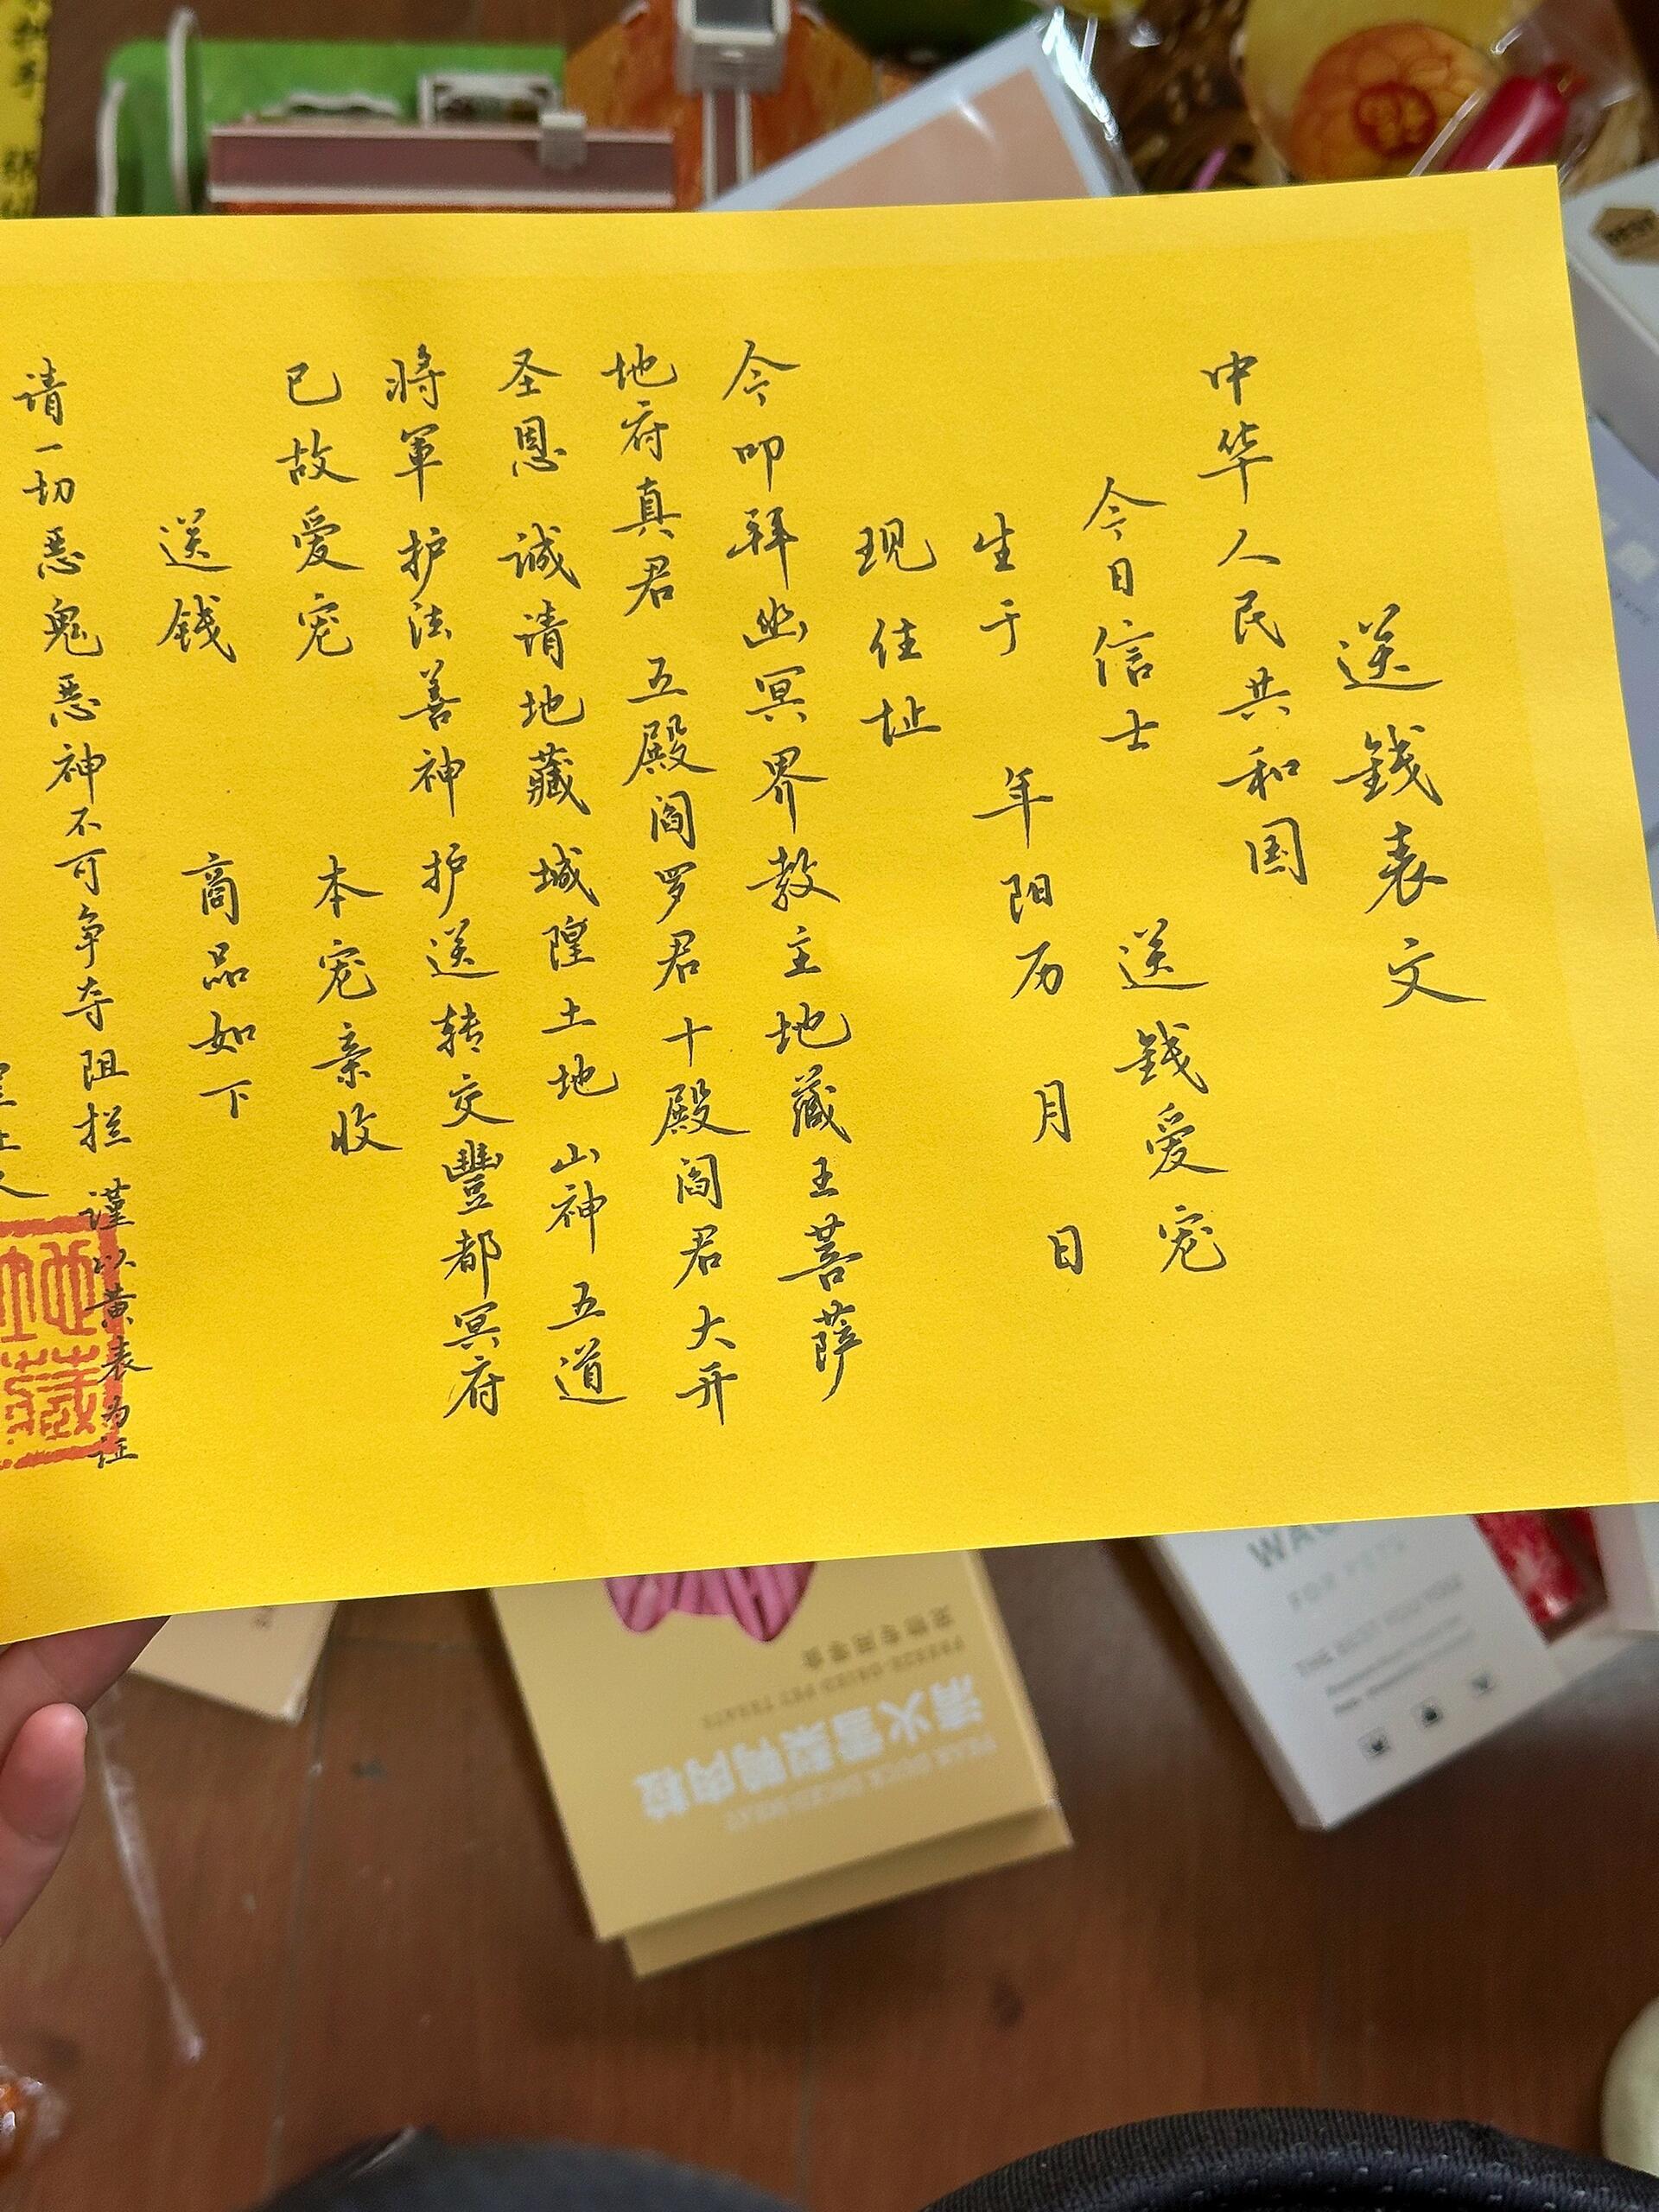 送錢表文
中华人民共和国
今日信士 送錢爱宠
生于 年阳历 月 日
现住址
今叩拜幽冥界教主地藏王菩萨
地府真君 五殿阎罗君十殿阎君大开
圣恩 诚请地藏 城隍土地 山神 五道
将軍 护法善神 护送转交豐都冥府
已故爱宠 本宠亲收
送钱 商品如下
请一切恶鬼恶神不可争夺阻拦 谨以黄表为证
地藏
清火雪梨鴨肉粒
FREEZE-DRIED PET TREATS
FOR PETS